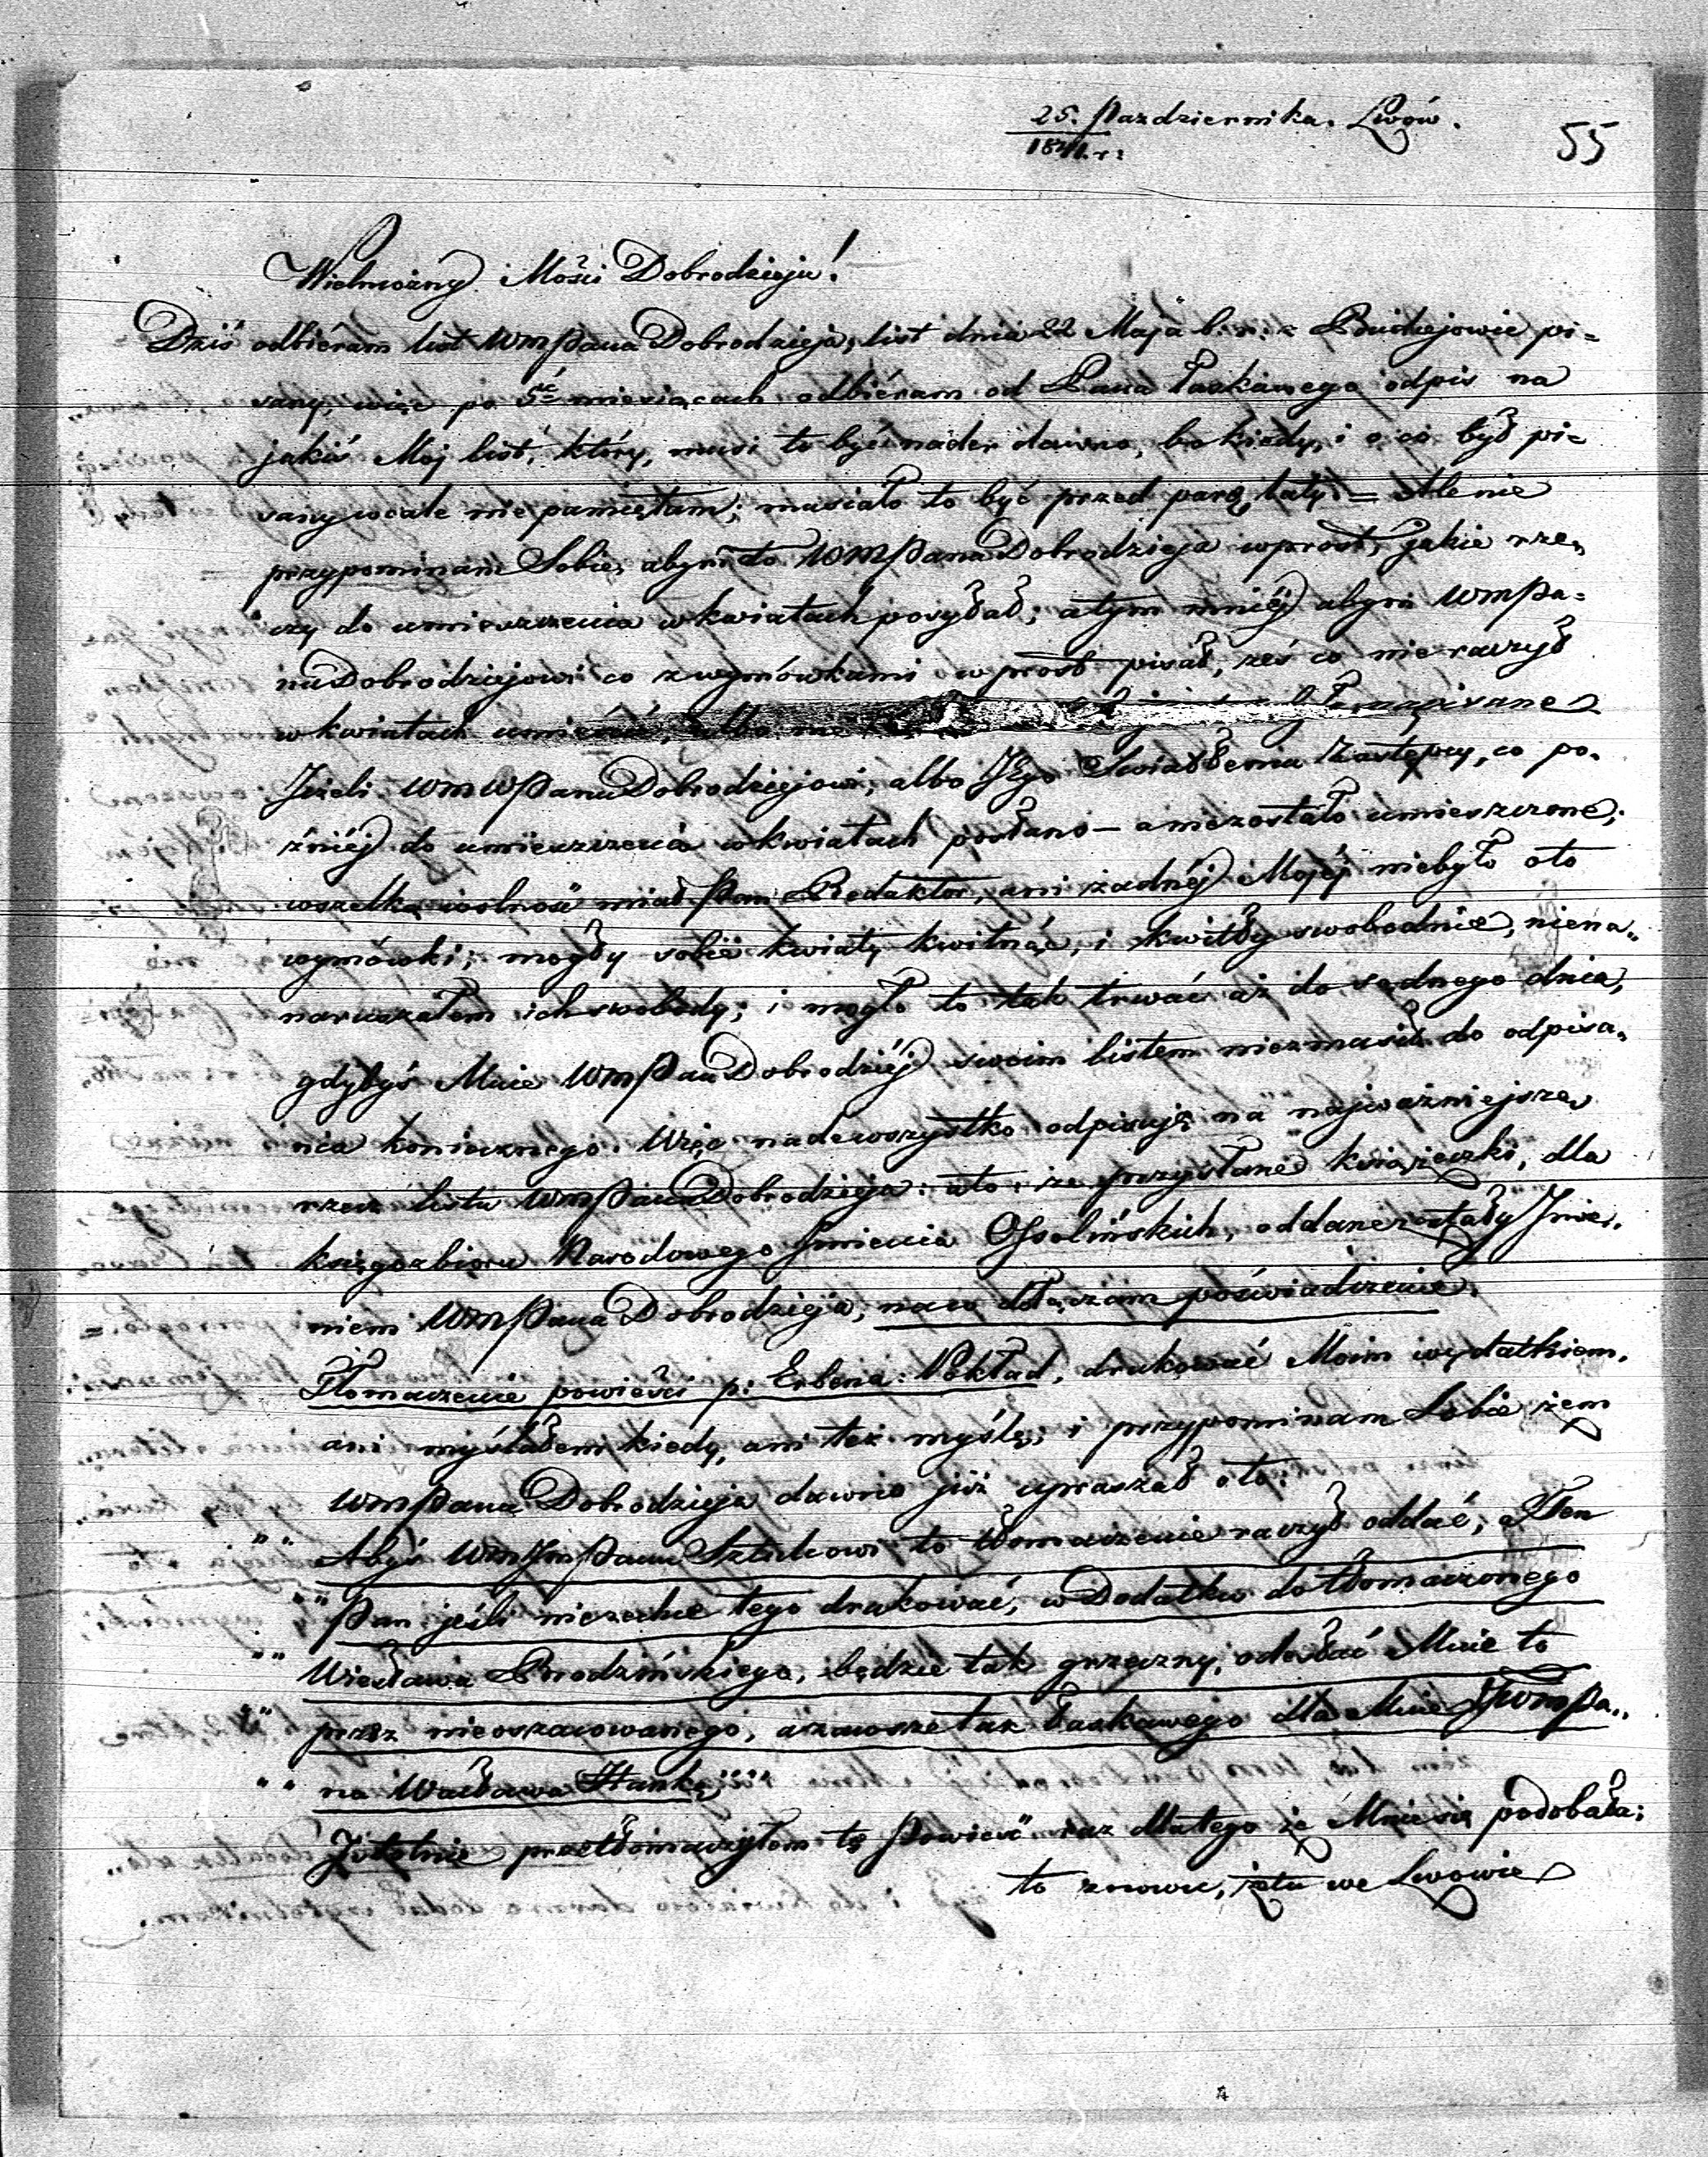 25. Pazdziernika. Lwów.
1841. r:
55
Wielmożny Mości Dobrodzieju!
Dziś odbiéram list WMPana Dobrodzieja, list dnia 22 Maja b: r: z pi=
sany, więc po 5ciu miesiącach odbiéram od Pana Łaskawego odpis na
jakiś Mój list, który, musi to być nader dawno, bo kiedy, i o co był pi=
sany wcale nie pamiętam; musiało to być przed parą laty. = Ale nie
przypominam Sobie, abym to WMPana Dobrodzieja wprost, jakie rze,
czy do umieszczenia w kwiatach posyłał; a tym mniéj abym WMPa=
nu Dobrodziejowi co z wymówkami wprost pisał, żeś co nie raczył
w kwiatach umieścić, albo nie
Jeżeli WMWPanu Dobrodziejowi, albo Zastępcy, co po.
źniéj do umieszczenia w kwiatach posłano – a niezostało umieszczone;
wszelką wolność miał Pan Redaktor, ani żadnéj Mojéj niebyło oto
wymówki; mogły sobie kwiaty kwitnąć, i kwitły swobodnie, niena„
naruszałem ich swobody; i mogło to tak trwać aż do sądnego dnia,
gdybyś Mnie WMPan Dobrodziéj swoim listem niezmusił do odpisa„
nia koniecznego. Więc nadewszystko odpisuję na najważniejsze
rzecz listu WMPana Dobrodzieja: a to: że przysłane książeczki, dla
księgozbioru Narodowego Imienia Ossolińskich, oddane zostały Imie,
niem WMPana Dobrodzieja, na co dołączam poświadczenie.
Tłomaczenie powieści p: Erbena: Poklad, drukować Moim wydatkiem.
ani myślałem kiedy, ani też myślę; i przypominam Sobie żem
WMPana Dobrodzieja dawno już upraszał oto:
„ „ Abyś to tłomaczenie raczył oddać, a Ten
„ „ Pan jeśli niezechce tego drukować, w Dodatku do tłomaczonego
„ „ Wiesława Brodzińskiego, będzie tak grzeczny, odesłać Mnie to
„ „ przez nieoszacowanego, a zawsze tak łaskawego dla Mnie JWMPa„
„ „ na Wacława Hankę; „ „
Istotnie przetłomaczyłem tę Powieść raz dlatego że Mnie się podobała;
to znowu, że tu we Lwowie